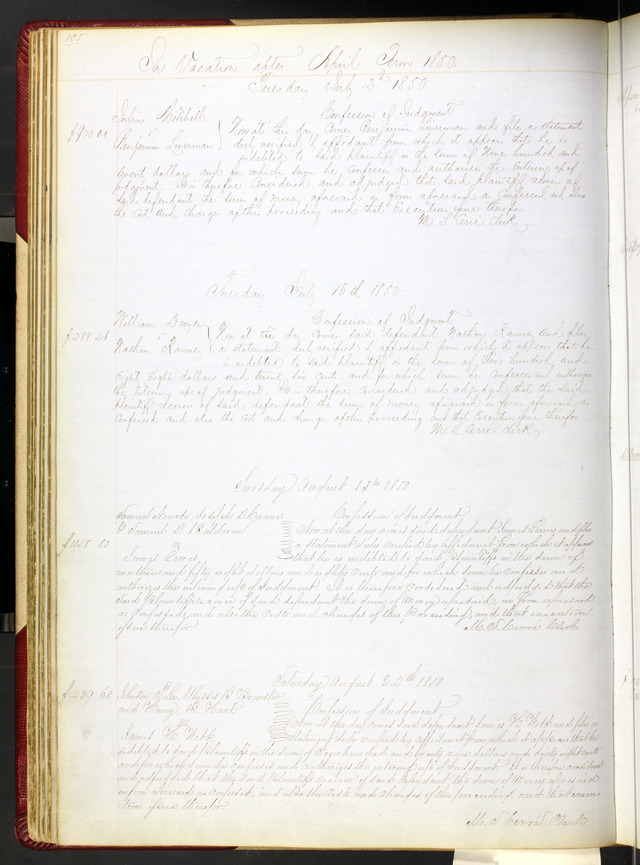 105
In Vacation after April Term 1850
Tuesday July 2d 1850
Mitchell Confession of Judgment
vs
Benjamin Liverman Now at this day Come Benjamin Liverman and file a statement
duly verified by affidavit from which it appears that he is
indebted to said plaintiff in the sum of Nine hundred and
dollars and for which sum he confesses and authorises the entering up of
judgment. It is therefore Considered and adjudged that said plaintiff recover of
said defendant the sum of money aforesaid in form aforesaid as Confessed and also
the Cost and charges of this proceeding and that Execution issue therefor
M. S. Cerré Clerk
Tuesday July 16th 1850
$288.26
William Confession of Judgment
vs
Nathan Ranney Now at this day Comes said defendant Nathan Ranney and files
a statement duly verified by affidavit from which it appears that he
is indebted to said plaintiff in the sum of Two hundred and
Eighty Eight dollars and twenty six cents and for which sum he confesses and authorises
the entering up of judgment. It is therefore Considered and adjudged that the said
plaintiff recover of said defendant the sum of money aforesaid in form aforesaid as
Confessed and also the Cost and charges of this proceeding and that Execution issue therefor
M. S. Cerré Clerk
Tuesday August 13th 1850
Joseph D
& Samuel D Confession of Judgment
vs Now at this day comes said defendant James and files
$1058 80 a statement duly verified by affidavit from which it appears
James that he is indebted to said Plaintiffs in the sum of
one thousand fifty eight dollars and eighty cents and for which sum he confesses and
authorizes the entering up of Judgment. It is therefore considered and adjudged that the
said Plaintiffs recover of said defendant the sum of money aforesaid in form aforesaid
as confessed, and also the costs and charges of this proceeding, and that execution
issue therefor
M. S. Cerré Clerk
Saturday August 24th 1850
Ulysses B Brewster
and Henry B Confession of Judgment
vs Now at this day comes said defendant James H Webb and files a
James H Webb Statement duly verified by affidavit from which it appears that he is
indebted to said Plaintiffs in the sum of hundred and dollars and cents
and for which sum he confesses and authorizes the entering up of Judgment. It is therefore considered
and adjudged that the said Plaintiffs recover of said defendant the sum of Money aforesaid
in form aforesaid as confessed, and also the costs and charges of this proceeding and that execu-
tion issue therefor.
M. S. Cerré Clerk